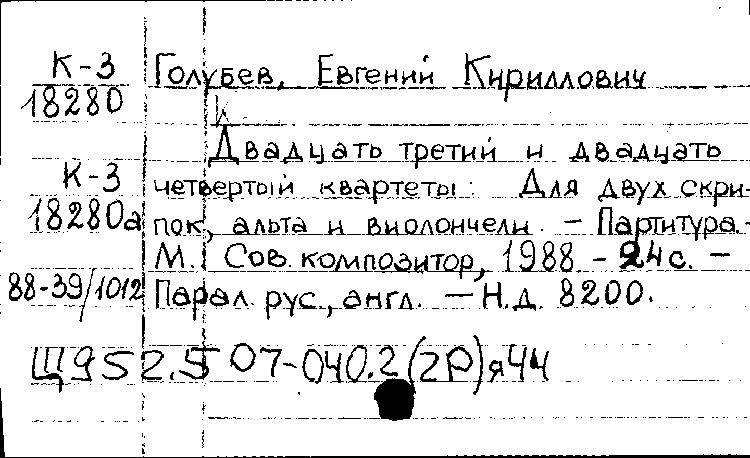 К-3 Голубев, Евгений Кириллович
18280
Двадцать третий и двадцать
К-3 четвертый квартеты: Для двух скри-
18280а пок, альта и виолончели. – Партитура. –
М.: Сов. композитор, 1988. – 24 с. –
88-39/1012 Парал. рус., англ. – Н.д. 8200.
Щ952.5 07-040.2(2Р)я44